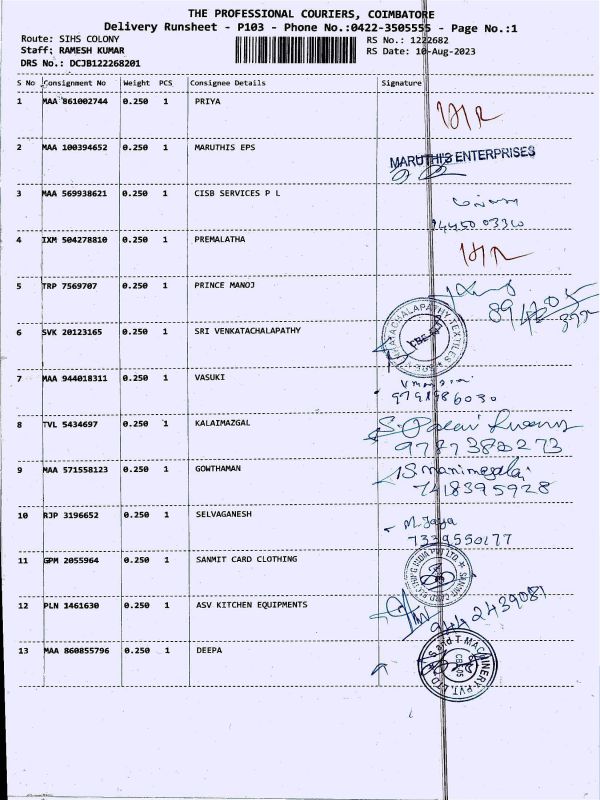 THE PROFESSIONAL COURIERS, COIMBATORE
Delivery Runsheet - P103 - Phone No.:0422-3505555 - Page No.:1
Route: SIHS COLONY RS No.: 1222682
Staff: RAMESH KUMAR RS Date: 10-Aug-2023
DRS No.: DCJB122268201
S No Consignment No Weight PCS Consignee Details Signature
1 MAA 861002744 0.250 1 PRIYA
2 MAA 100394652 0.250 1 MARUTHIS EPS MARUTHI'S ENTERPRISES
3 MAA 569938621 0.250 1 CISB SERVICES P L
94450 03310
4 IXM 504278810 0.250 1 PREMALATHA
5 TRP 7569707 0.250 1 PRINCE MANOJ
6 SVK 20123165 0.250 1 SRI VENKATACHALAPATHY
7 MAA 944018311 0.250 1 VASUKI
9791986030
8 TVL 5434697 0.250 1 KALAIMAZGAL
9787380273
9 MAA 571558123 0.250 1 GOWTHAMAN S. Manimegalai
7418395928
10 RJP 3196652 0.250 1 SELVAGANESH M. Jaya
7339550177
11 GPM 2055964 0.250 1 SANMIT CARD CLOTHING
12 PLN 1461630 0.250 1 ASV KITCHEN EQUIPMENTS 9442439081
13 MAA 860855796 0.250 1 DEEPA S and T MACHINERY PVT. LTD